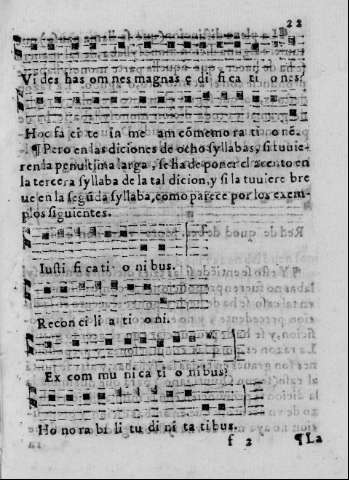 22
Vides has omnes magnas ędificationes.
Hoc facite in meam cõmemorationẽ.
¶Pero en las diciones de ocho syllabas, si tuuie
ren la penultima larga, se ha de poner el acento en
la tercera syllaba de la tal dicion, y si la tuuiere bre
ue en la segũda syllaba, como parece por los exem-
plos siguientes.
Iustificationibus.
Reconciliationi.
Excommunicationibus.
Honorabilitudinitatibus.
f 2 ¶La